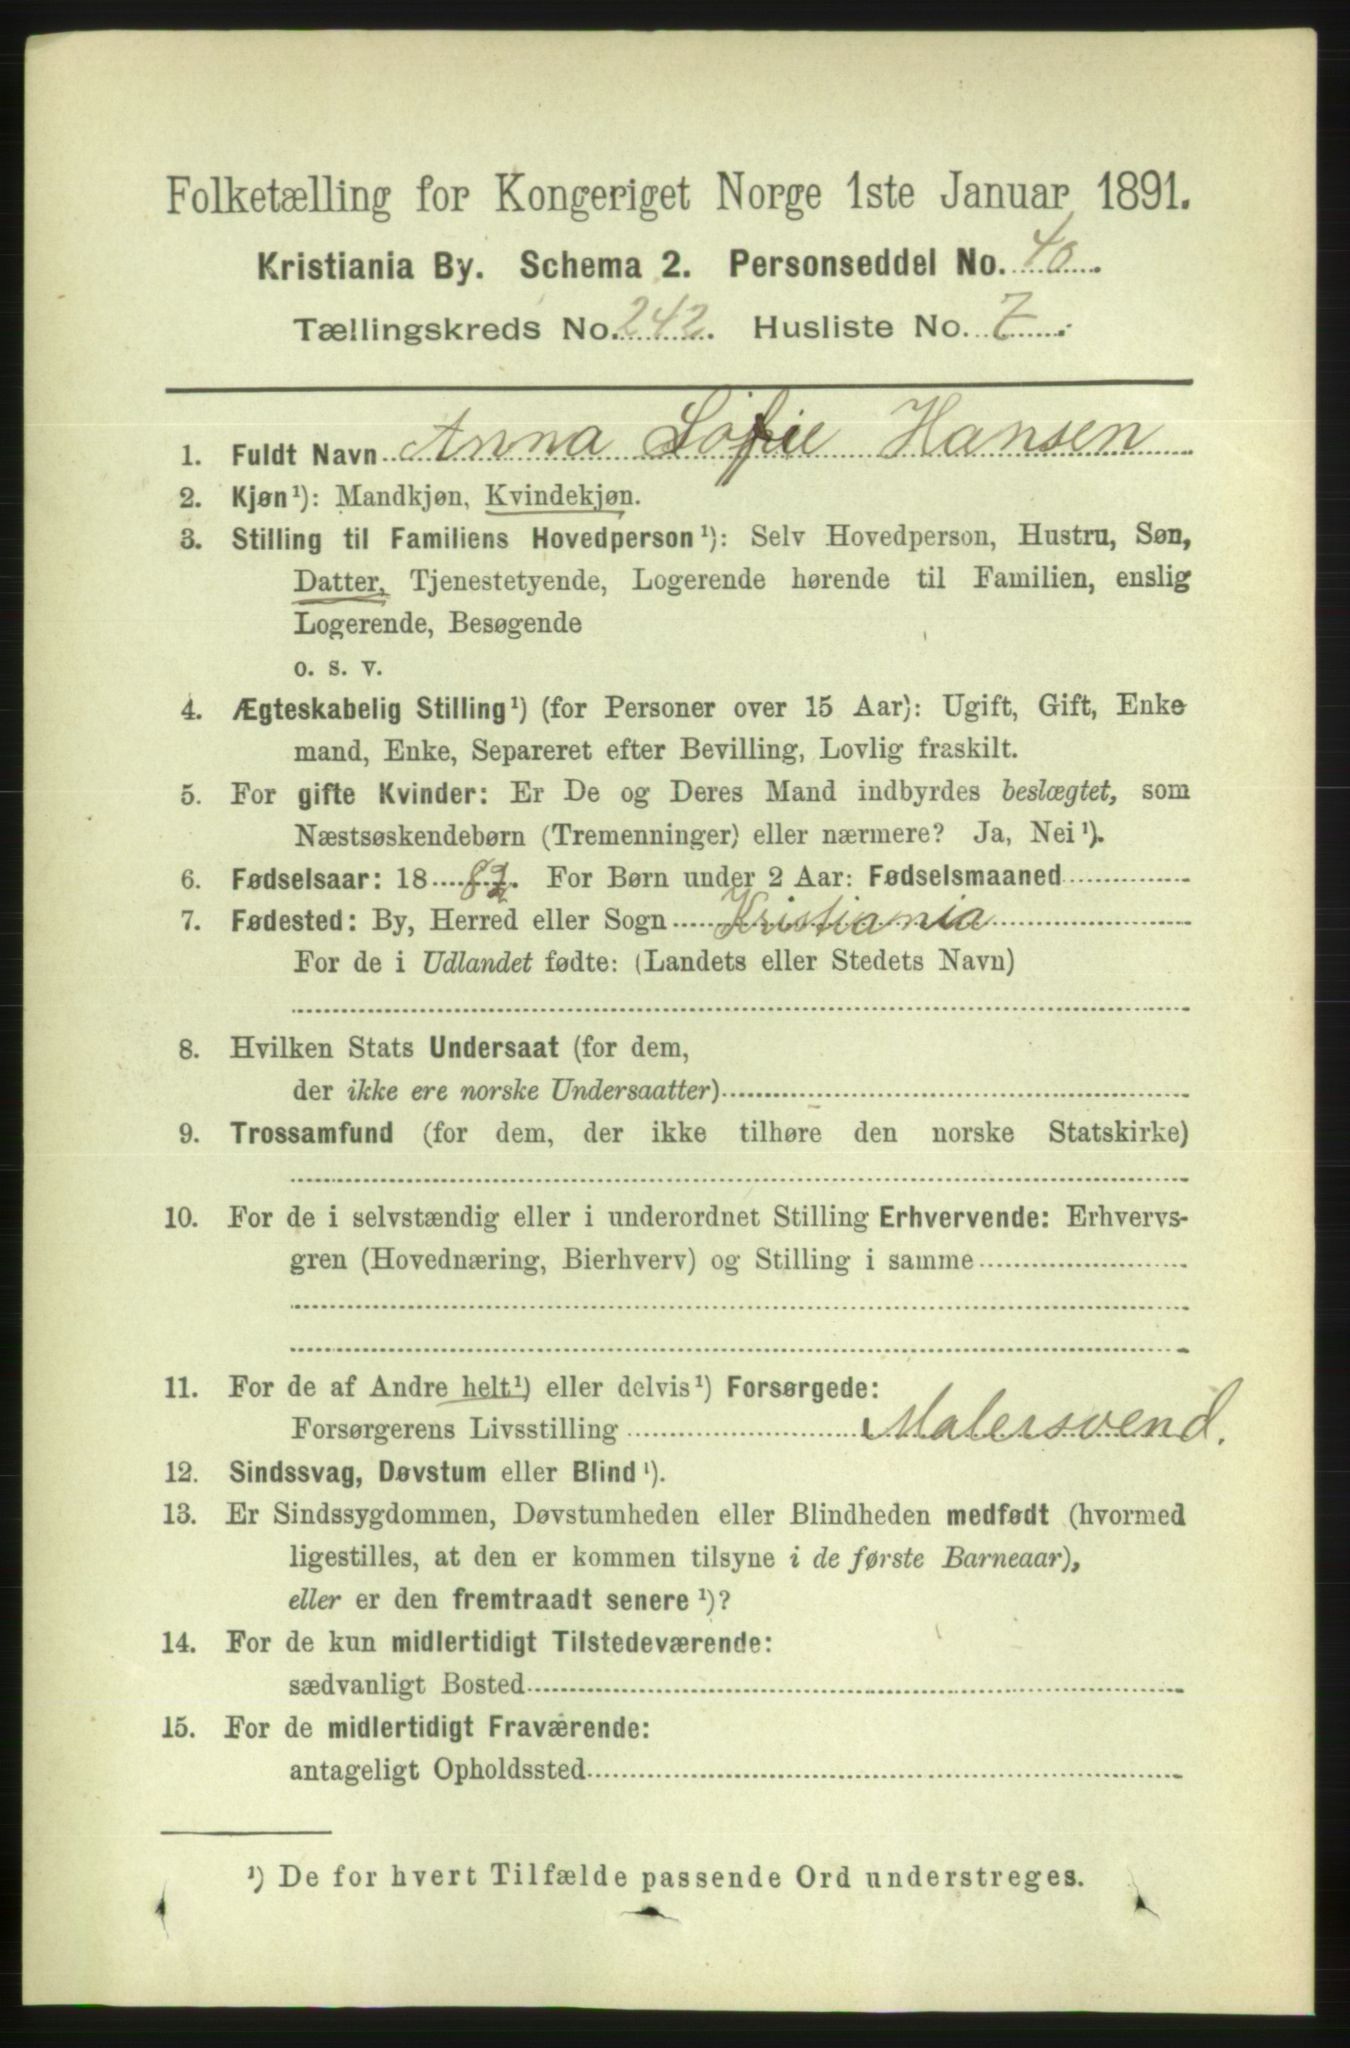 Folketælling for Kongeriget Norge 1ste Januar 1891.
Kristiania By. Schema 2. Personseddel No. 40.
Tællingskreds No. 242. Husliste No. 7.
1. Fuldt Navn Anna Sofie Hansen
2. Kjøn¹): Mandkjøn, Kvindekjøn.
3. Stilling til Familiens Hovedperson¹): Selv Hovedperson, Hustru, Søn,
Datter, Tjenestetyende, Logerende hørende til Familien, enslig
Logerende, Besøgende
o. s. v.
4. Ægteskabelig Stilling¹) (for Personer over 15 Aar): Ugift, Gift, Enke
mand, Enke, Separeret efter Bevilling, Lovlig fraskilt.
5. For gifte Kvinder: Er De og Deres Mand indbyrdes beslægtet, som
Næstsøskendebørn (Tremenninger) eller nærmere? Ja, Nei¹).
6. Fødselsaar: 18 . For Børn under 2 Aar: Fødselsmaaned
7. Fødested: By, Herred eller Sogn Kristiania
For de i Udlandet fødte: (Landets eller Stedets Navn)
8. Hvilken Stats Undersaat (for dem,
der ikke ere norske Undersaatter)
9. Trossamfund (for dem, der ikke tilhøre den norske Statskirke)
10. For de i selvstændig eller i underordnet Stilling Erhvervende: Erhvervs-
gren (Hovednæring, Bierhverv) og Stilling i samme
11. For de af Andre helt¹) eller delvis¹) Forsørgede:
Forsørgerens Livsstilling Malersvend.
12. Sindssvag, Døvstum eller Blind¹).
13. Er Sindssygdommen, Døvstumheden eller Blindheden medfødt (hvormed
ligestilles, at den er kommen tilsyne i de første Barneaar),
eller er den fremtraadt senere¹)?
14. For de kun midlertidigt Tilstedeværende:
sædvanligt Bosted
15. For de midlertidigt Fraværende:
antageligt Opholdssted
¹) De for hvert Tilfælde passende Ord understreges.